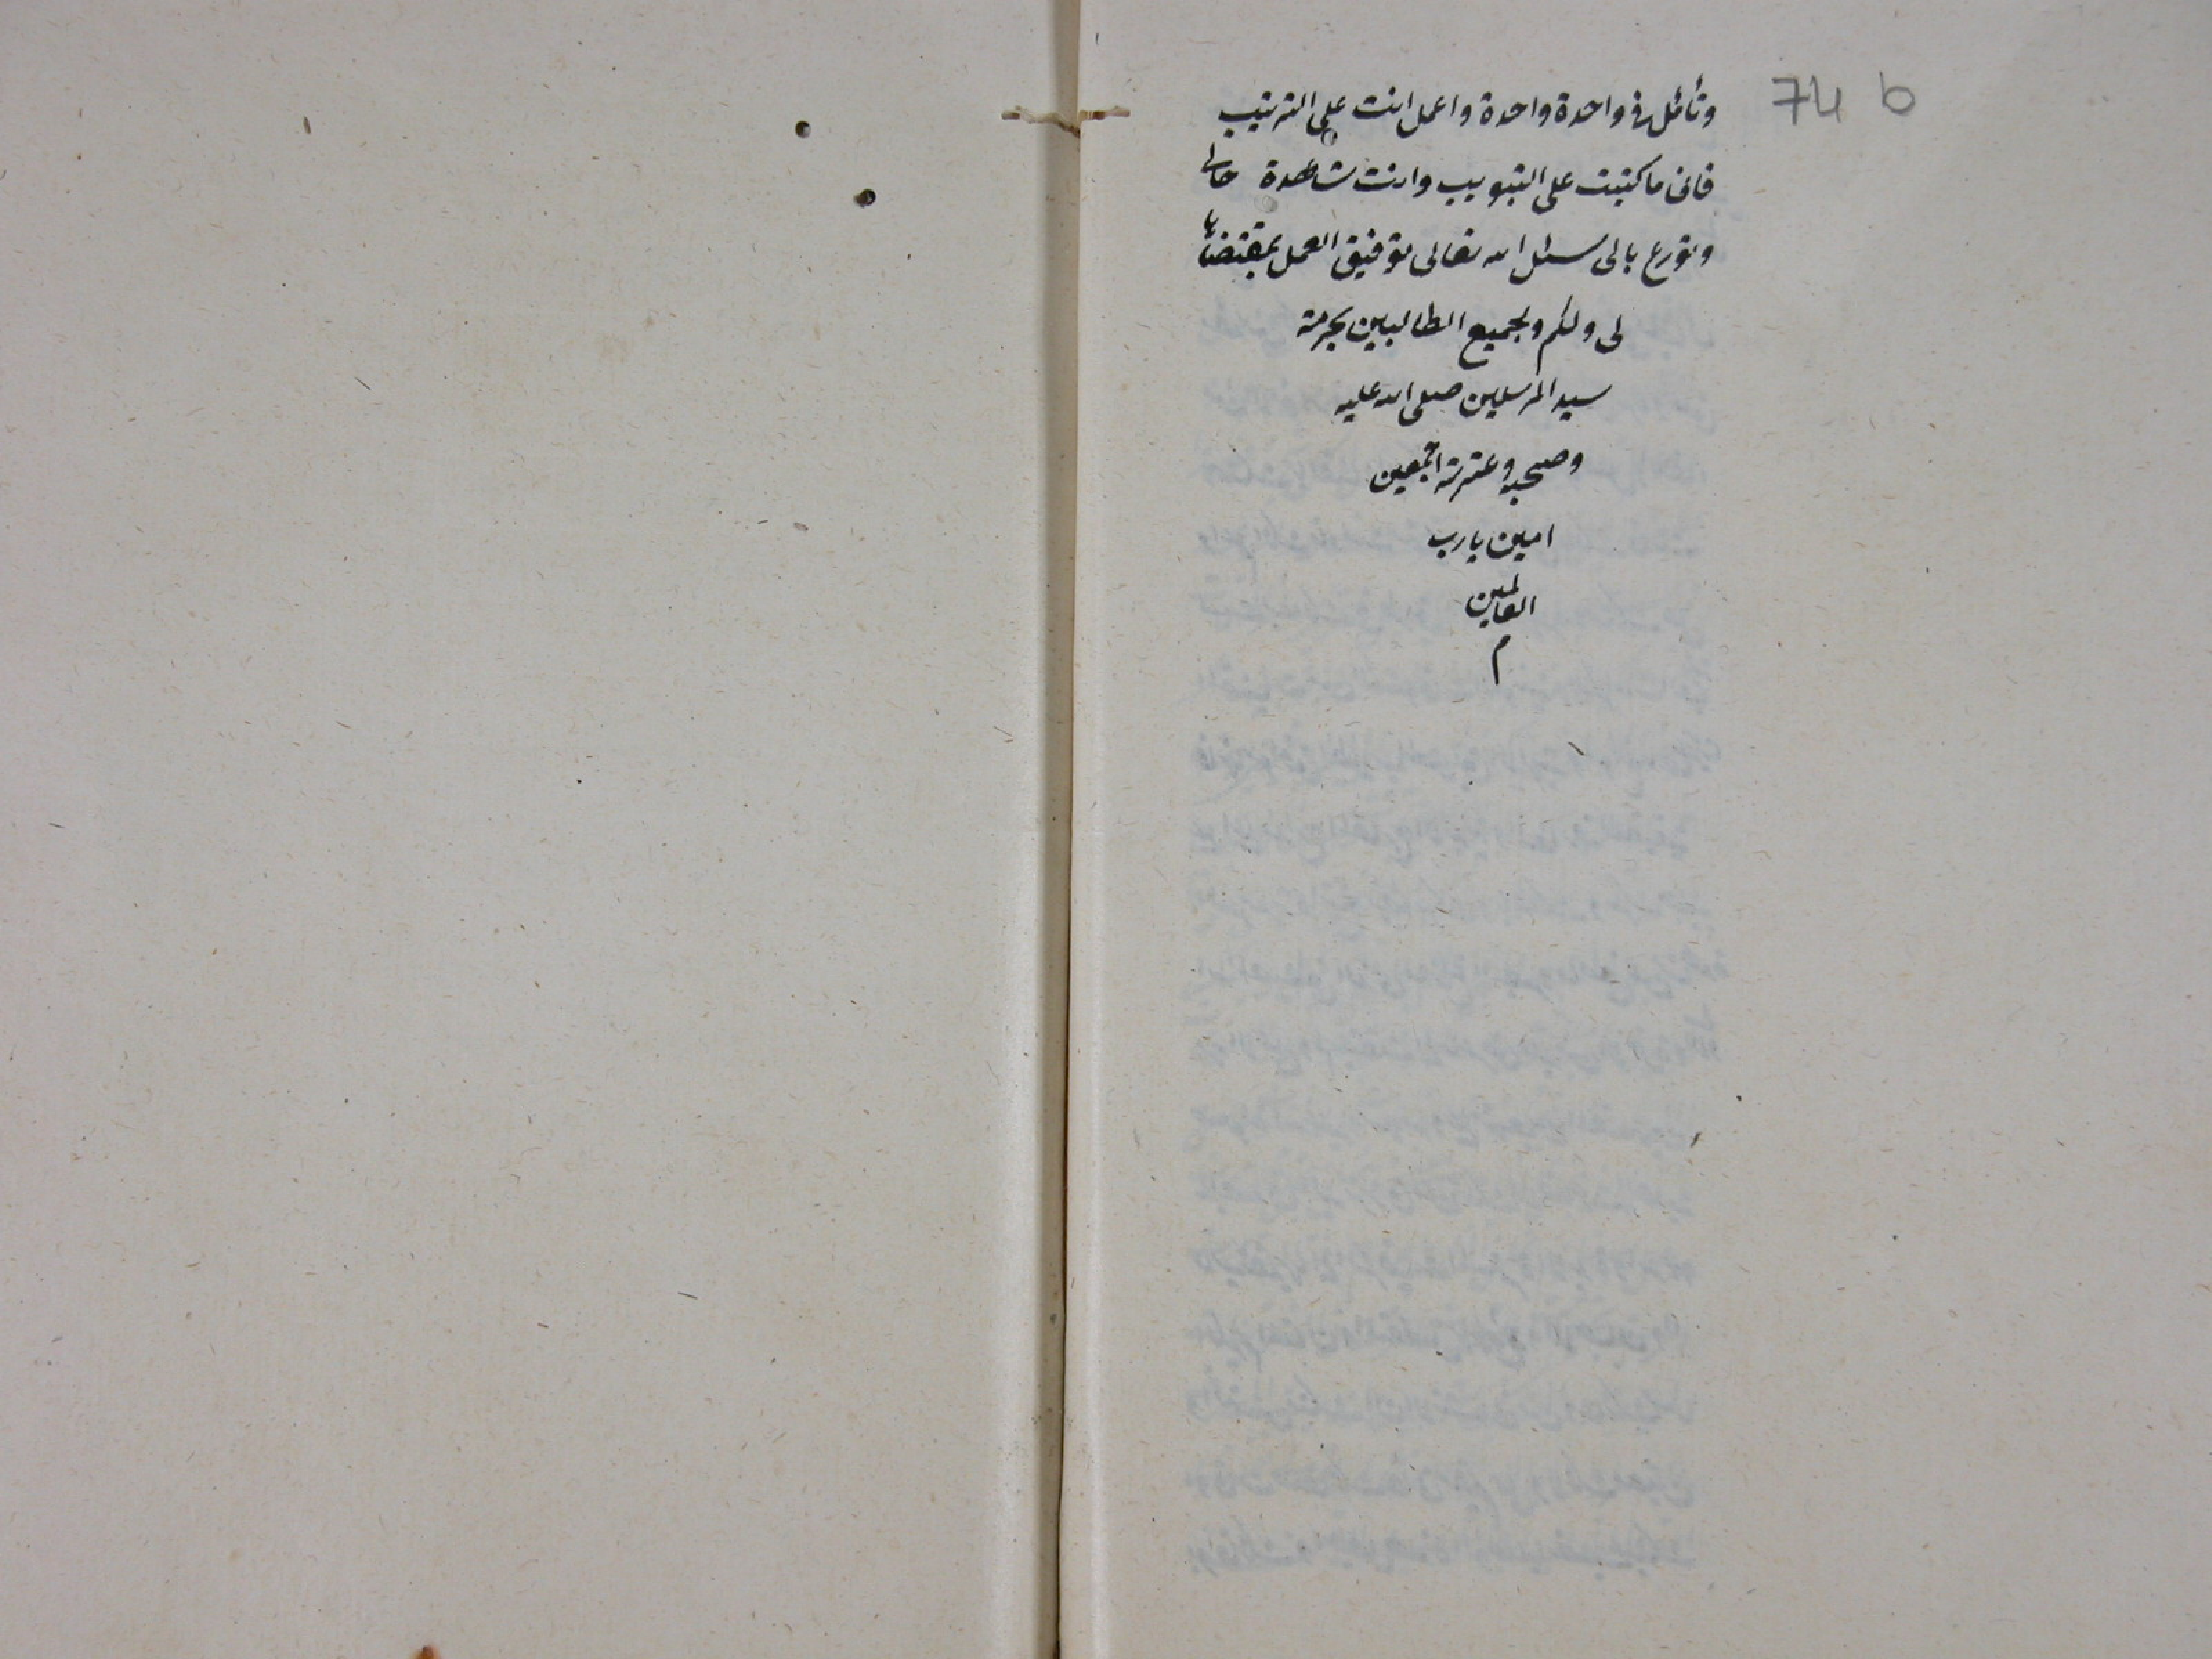 74 b
وتأمل فى واحدة واحدة واعمل انت على الترتيب
فانى ما كتبت على التبويب وانت شاهدة حالى
وتوزع بالى اسئل الله تعالى توفيق العمل بمقتضاها
لى ولكم ولجميع الطالبين بحرمة
سيد المرسلين صلى الله عليه
وصحبه وعترته اجمعين
امين يا رب
العالمين
م